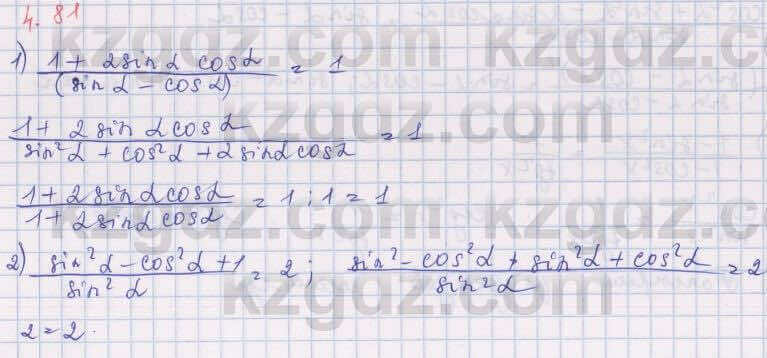 4.81
1) (1 + 2 sin α cos α)/(sin α − cos α) = 1
(1 + 2 sin α cos α)/(sin² α + cos² α + 2 sin α cos α) = 1
(1 + 2 sin α cos α)/(1 + 2 sin α cos α) = 1 ; 1 = 1
2) (sin² α − cos² α + 1)/(sin² α) = 2 ; (sin² − cos² α + sin² α + cos² α)/(sin² α) = 2
2 = 2.
kzgdz.com